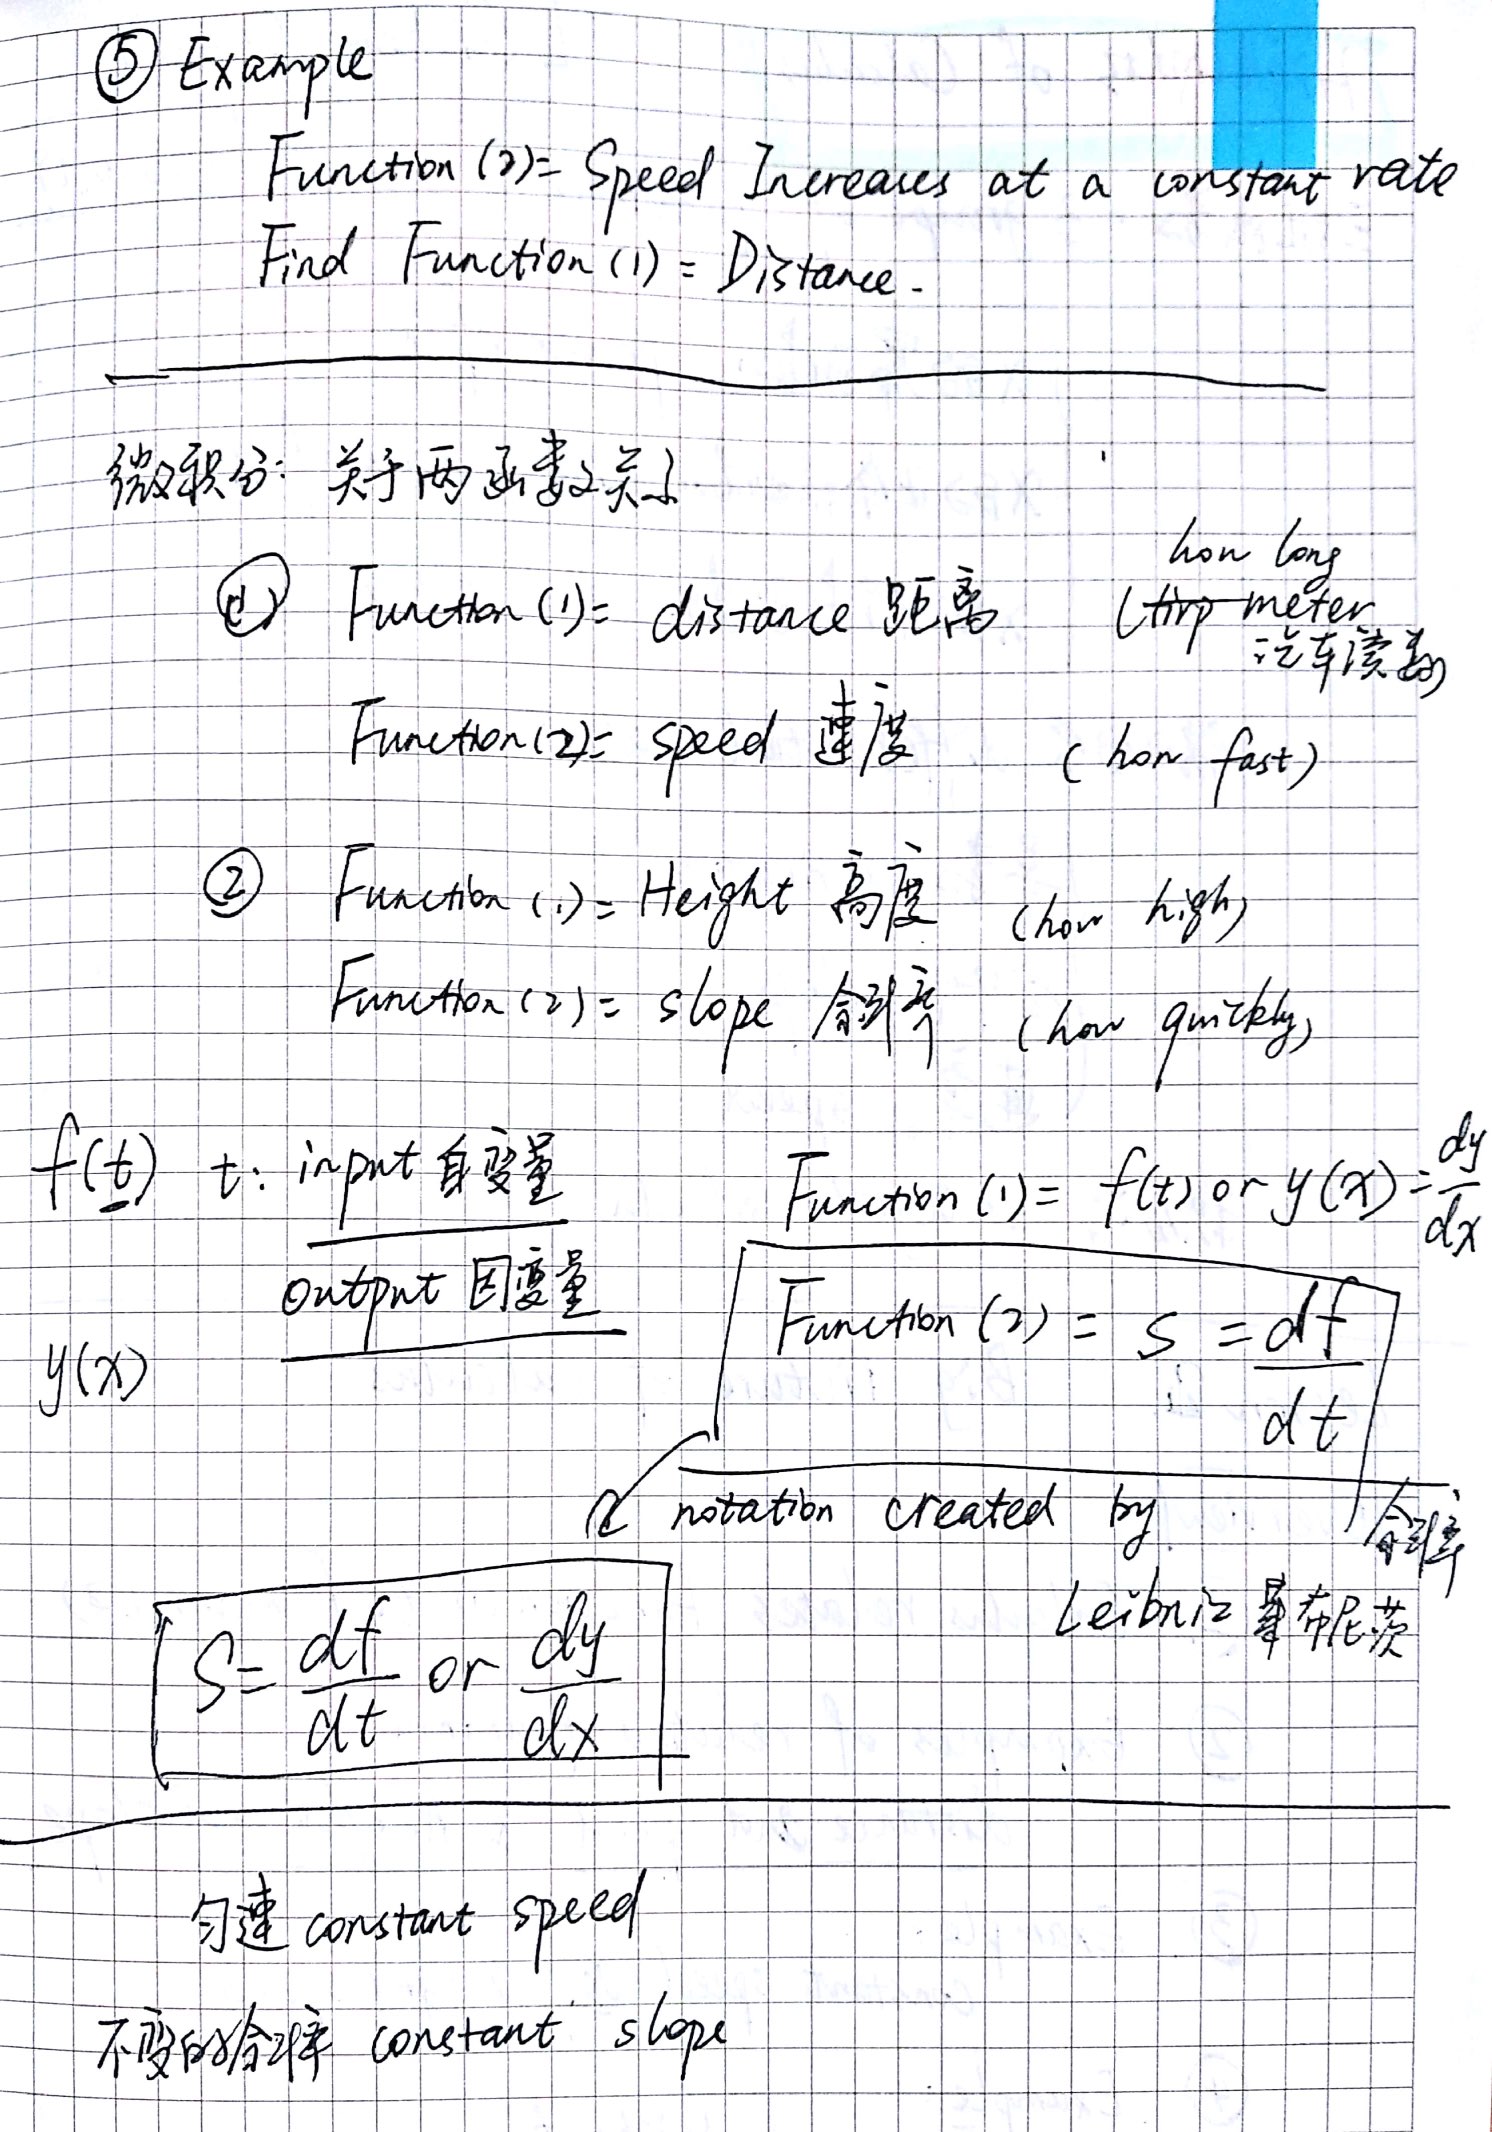 ⑤ Example
Function (2) = Speed Increases at a constant rate
Find Function (1) = Distance.
微积分: 关于两函数之关系
① Function (1) = distance 距离 (tirp meter how long
汽车读数)
Function (2) = speed 速度 (how fast)
② Function (1) = Height 高度 (how high)
Function (2) = slope 斜率 (how quickly)
f(t) t: input 自变量
output 因变量
y(x)
Function (1) = f(t) or y(x) = dy/dx
Function (2) = s = df/dt
斜率
notation created by
Leibniz 莱布尼茨
S = df/dt or dy/dx
匀速 constant speed
不变的斜率 constant slope